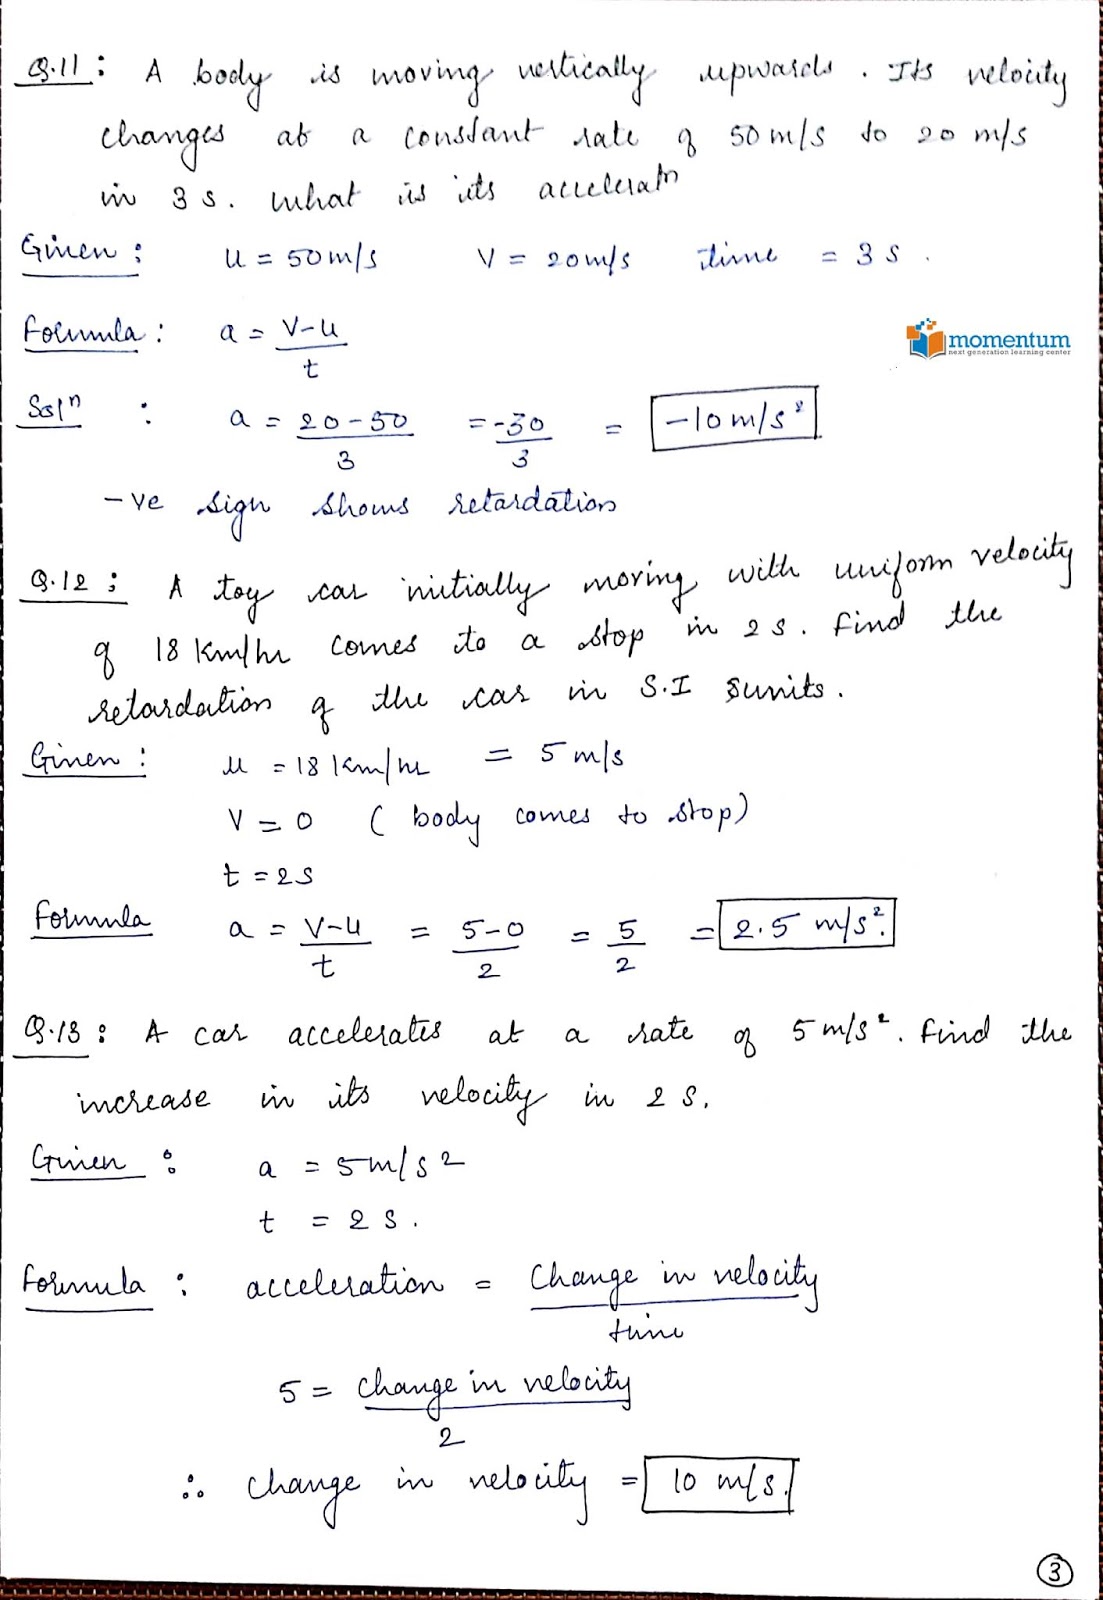 Q.11: A body is moving vertically upwards. Its velocity
changes at a constant rate of 50 m/s to 20 m/s
in 3 s. What is its acceleratn
Given: u = 50 m/s V = 20 m/s time = 3 s.
Formula: a = V-u / t
momentum
next generation learning center
Soln : a = 20-50 / 3 = -30 / 3 = -10 m/s²
-ve sign shows retardation
Q.12: A toy car initially moving with uniform velocity
of 18 Km/hr comes to a stop in 2 s. Find the
retardation of the car in S.I sunits.
Given: u = 18 Km/hr = 5 m/s
V = 0 (body comes to stop)
t = 2 s
Formula a = V-u / t = 5-0 / 2 = 5 / 2 = 2.5 m/s².
Q.13: A car accelerates at a rate of 5 m/s². Find the
increase in its velocity in 2 s.
Given : a = 5 m/s2
t = 2 s.
Formula : acceleration = Change in velocity / time
5 = change in velocity / 2
∴ change in velocity = 10 m/s.
3